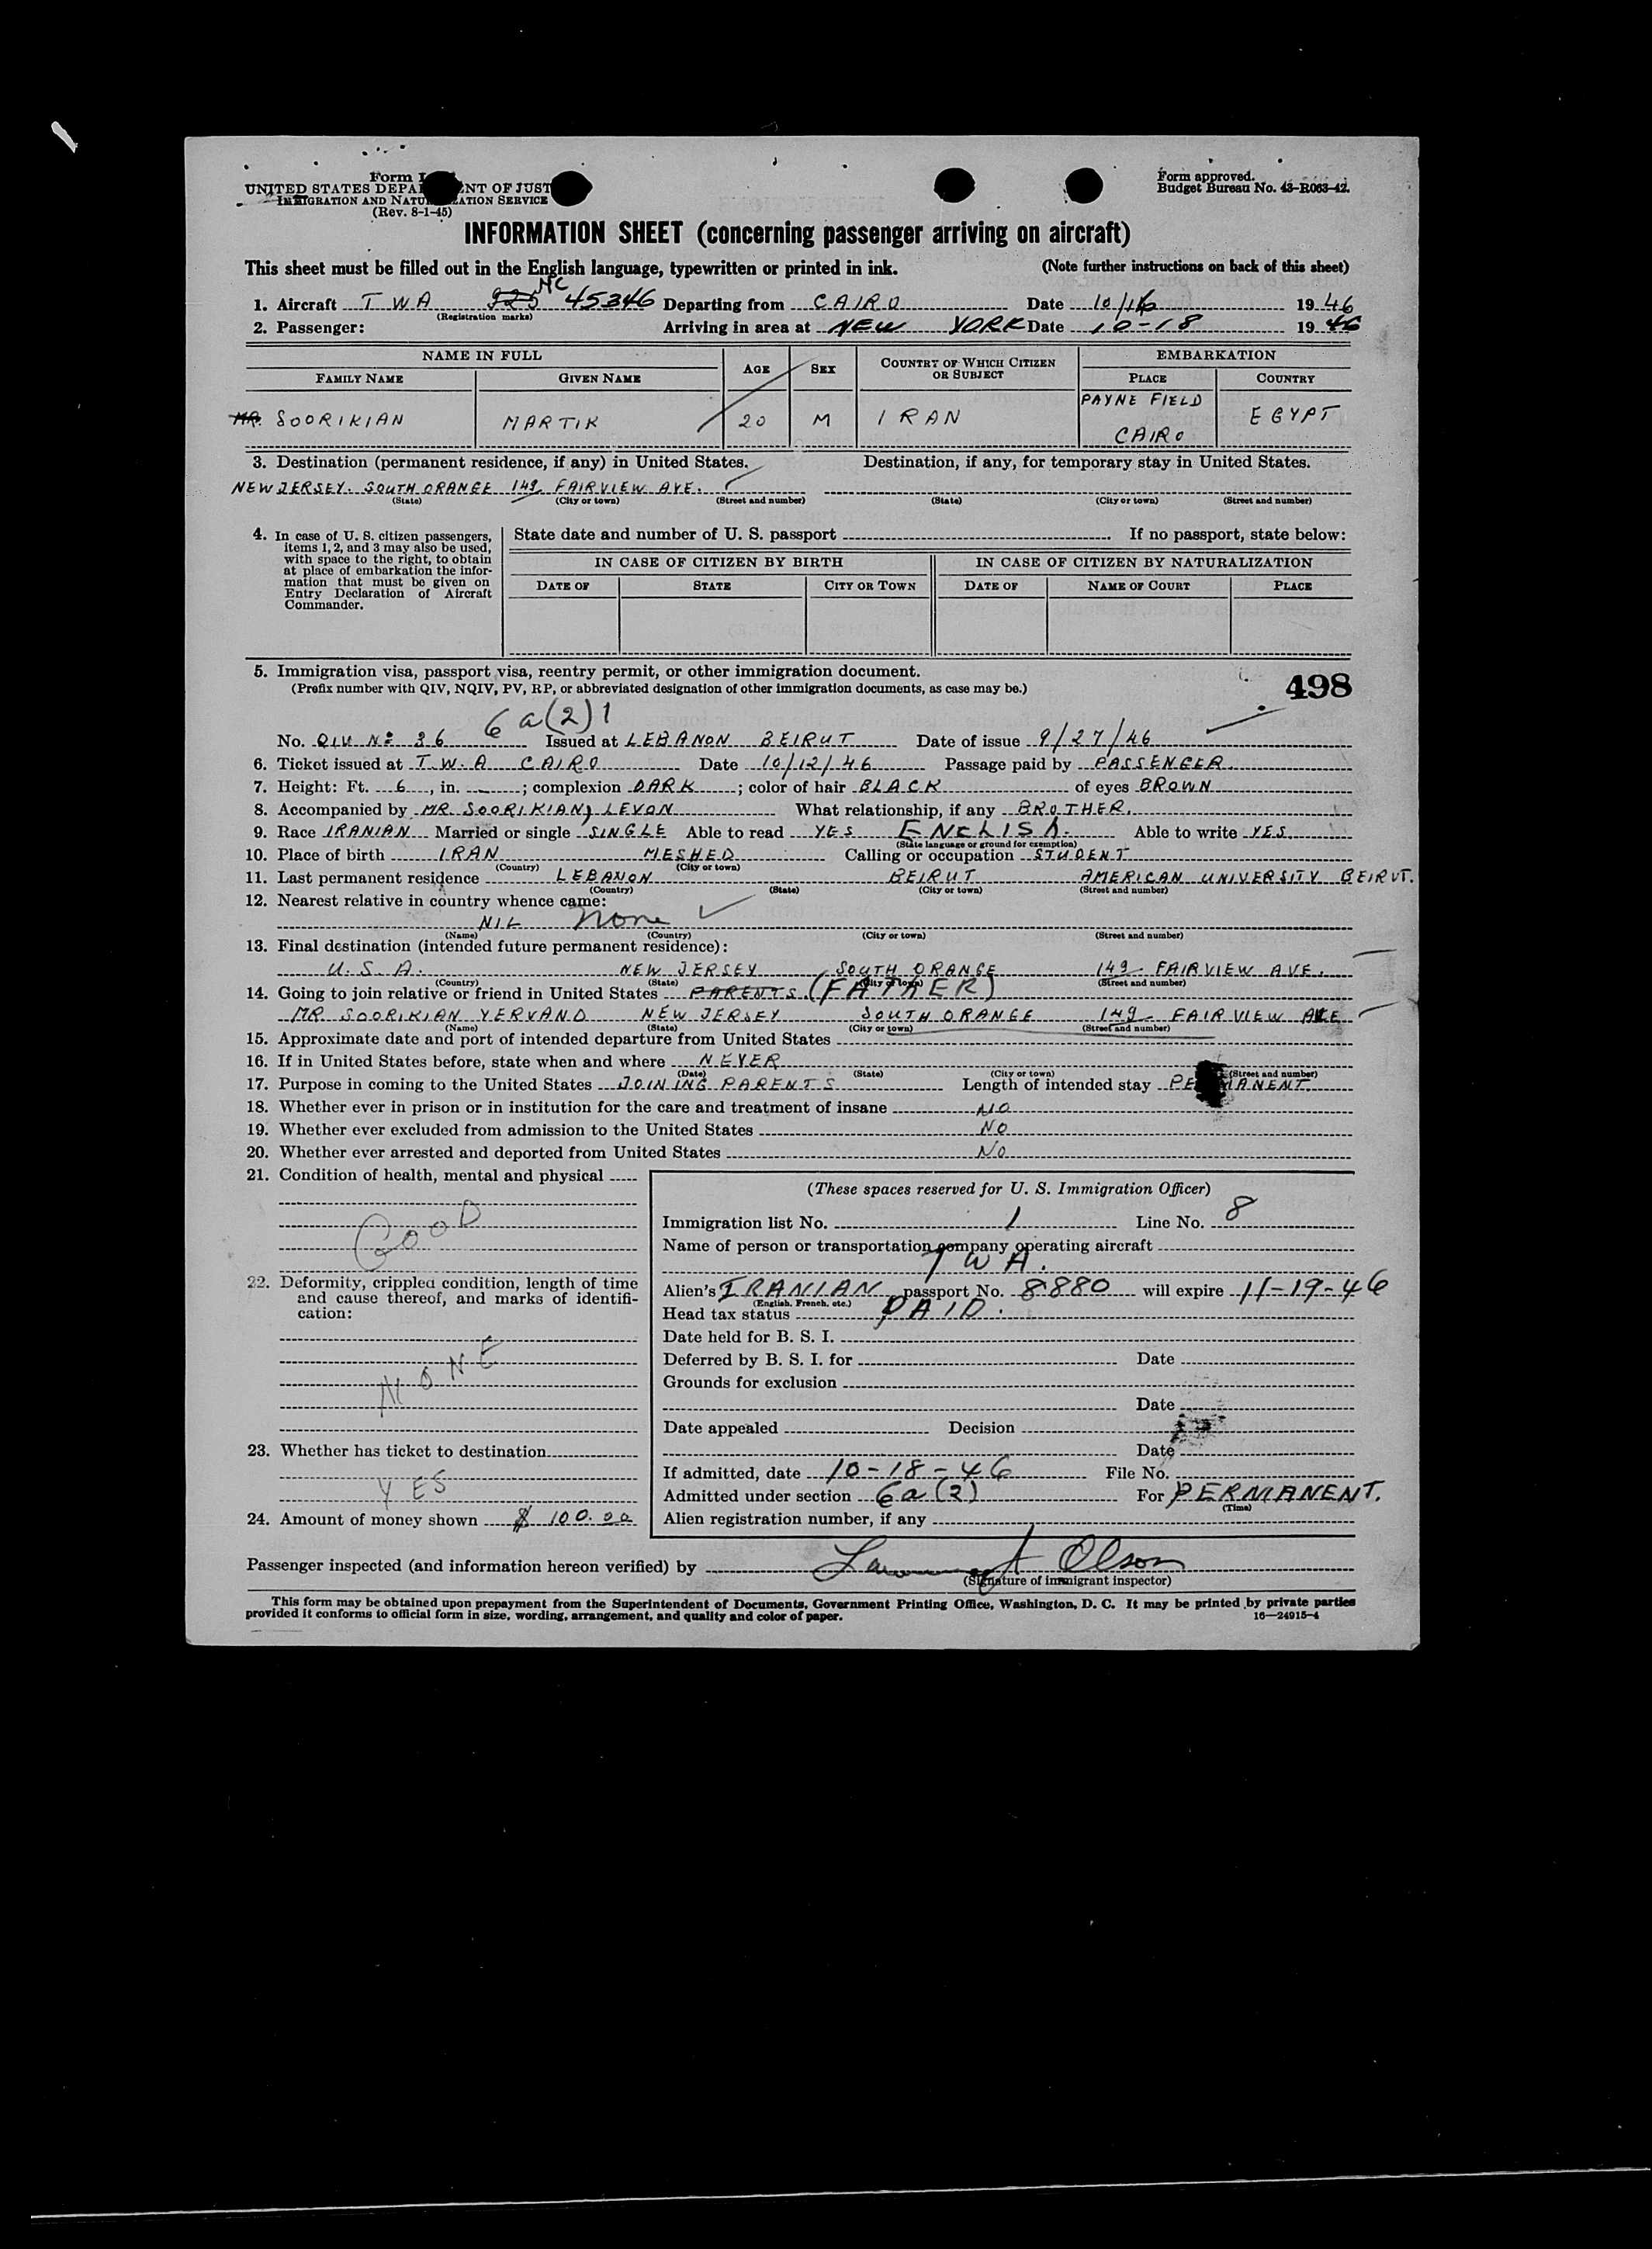 Form I
UNITED STATES DEPA NT OF JUST
IMMIGRATION AND NATU ZATION SERVICE
(Rev. 8-1-45)
Form approved.
Budget Bureau No. 43-R063-42.
INFORMATION SHEET (concerning passenger arriving on aircraft)
This sheet must be filled out in the English language, typewritten or printed in ink. (Note further instructions on back of this sheet)
1. Aircraft TWA NC 45346 Departing from CAIRO Date 10/16 1946
(Registration marks)
2. Passenger: Arriving in area at NEW YORK Date 10-18 1946
NAME IN FULL AGE SEX COUNTRY OF WHICH CITIZEN OR SUBJECT EMBARKATION
FAMILY NAME GIVEN NAME PLACE COUNTRY
MR. SOORIKIAN MARTIK 20 M IRAN PAYNE FIELD CAIRO EGYPT
3. Destination (permanent residence, if any) in United States. Destination, if any, for temporary stay in United States.
NEW JERSEY. SOUTH ORANGE 149 FAIRVIEW AVE.
(State) (City or town) (Street and number) (State) (City or town) (Street and number)
4. In case of U. S. citizen passengers, items 1, 2, and 3 may also be used, with space to the right, to obtain at place of embarkation the information that must be given on Entry Declaration of Aircraft Commander.
State date and number of U. S. passport If no passport, state below:
IN CASE OF CITIZEN BY BIRTH IN CASE OF CITIZEN BY NATURALIZATION
DATE OF STATE CITY OR TOWN DATE OF NAME OF COURT PLACE
5. Immigration visa, passport visa, reentry permit, or other immigration document.
(Prefix number with QIV, NQIV, PV, RP, or abbreviated designation of other immigration documents, as case may be.)
498
6a(2)1
No. QIV No 36 Issued at LEBANON BEIRUT Date of issue 9/27/46
6. Ticket issued at T.W.A CAIRO Date 10/12/46 Passage paid by PASSENGER.
7. Height: Ft. 6, in. —; complexion DARK; color of hair BLACK of eyes BROWN
8. Accompanied by MR SOORIKIAN, LEVON What relationship, if any BROTHER.
9. Race IRANIAN Married or single SINGLE Able to read YES ENGLISH. Able to write YES
(State language or ground for exemption)
10. Place of birth IRAN MESHED Calling or occupation STUDENT
(Country) (City or town)
11. Last permanent residence LEBANON BEIRUT AMERICAN UNIVERSITY BEIRUT.
(Country) (State) (City or town) (Street and number)
12. Nearest relative in country whence came:
NIL None
(Name) (Country) (City or town) (Street and number)
13. Final destination (intended future permanent residence):
U.S.A. NEW JERSEY SOUTH ORANGE 149 FAIRVIEW AVE.
(Country) (State) (City or town) (Street and number)
14. Going to join relative or friend in United States PARENTS. (FATHER)
MR SOORIKIAN YERVAND NEW JERSEY SOUTH ORANGE 149 FAIRVIEW AVE
(Name) (State) (City or town) (Street and number)
15. Approximate date and port of intended departure from United States
16. If in United States before, state when and where NEVER
(Date) (State) (City or town) (Street and number)
17. Purpose in coming to the United States JOINING PARENTS Length of intended stay PERMANENT.
18. Whether ever in prison or in institution for the care and treatment of insane NO
19. Whether ever excluded from admission to the United States NO
20. Whether ever arrested and deported from United States NO
21. Condition of health, mental and physical
GOOD
22. Deformity, crippled condition, length of time and cause thereof, and marks of identification:
NONE
23. Whether has ticket to destination
YES
24. Amount of money shown $ 100.00
(These spaces reserved for U. S. Immigration Officer)
Immigration list No. 1 Line No. 8
Name of person or transportation company operating aircraft
TWA.
Alien's IRANIAN passport No. 8880 will expire 11-19-46
(English, French, etc.)
Head tax status PAID.
Date held for B. S. I.
Deferred by B. S. I. for Date
Grounds for exclusion
Date
Date appealed Decision
Date
If admitted, date 10-18-46 File No.
Admitted under section 6a(2) For PERMANENT.
(Time)
Alien registration number, if any
Passenger inspected (and information hereon verified) by Olson
(Signature of immigrant inspector)
This form may be obtained upon prepayment from the Superintendent of Documents, Government Printing Office, Washington, D. C. It may be printed by private parties
provided it conforms to official form in size, wording, arrangement, and quality and color of paper. 16—24915-4